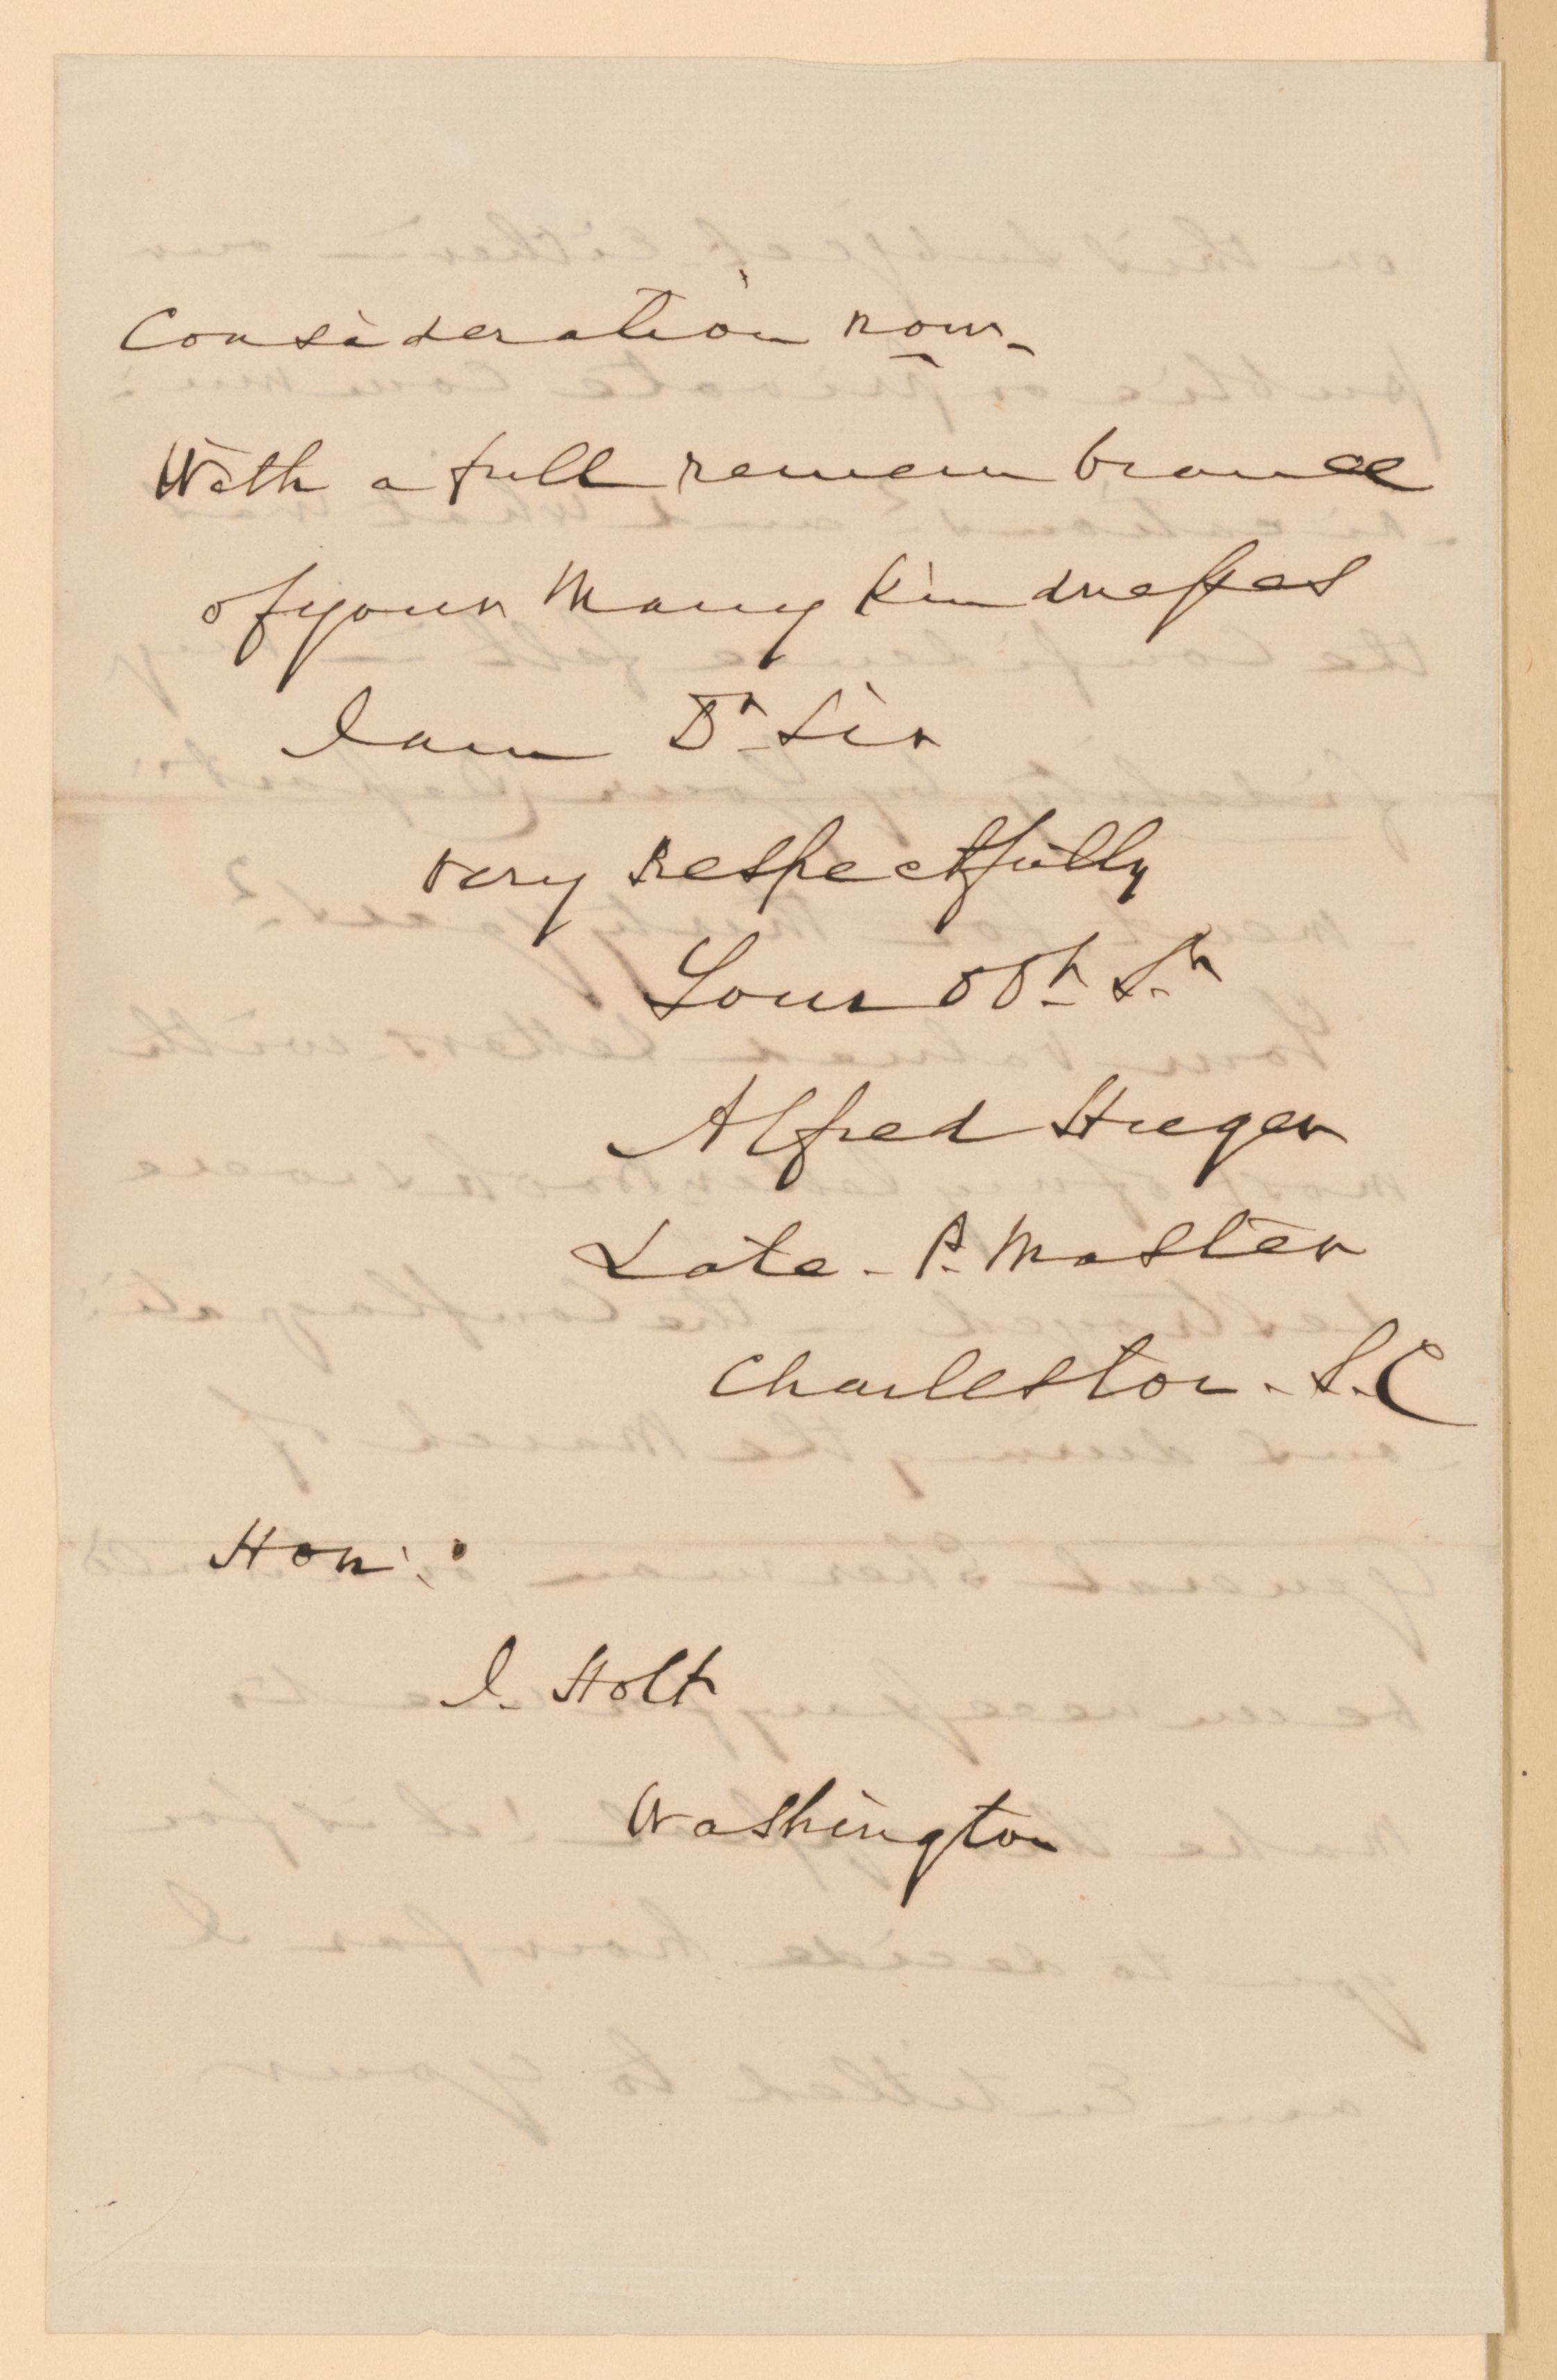 Consideration now_
With a full remembrance
of your many kindnesses
I am Dr. Sir
very respectfully
Your Obt. St.
Alfred Huger
Late - P. Master
Charleston - S.C
Hon:
J. Holt
Washington